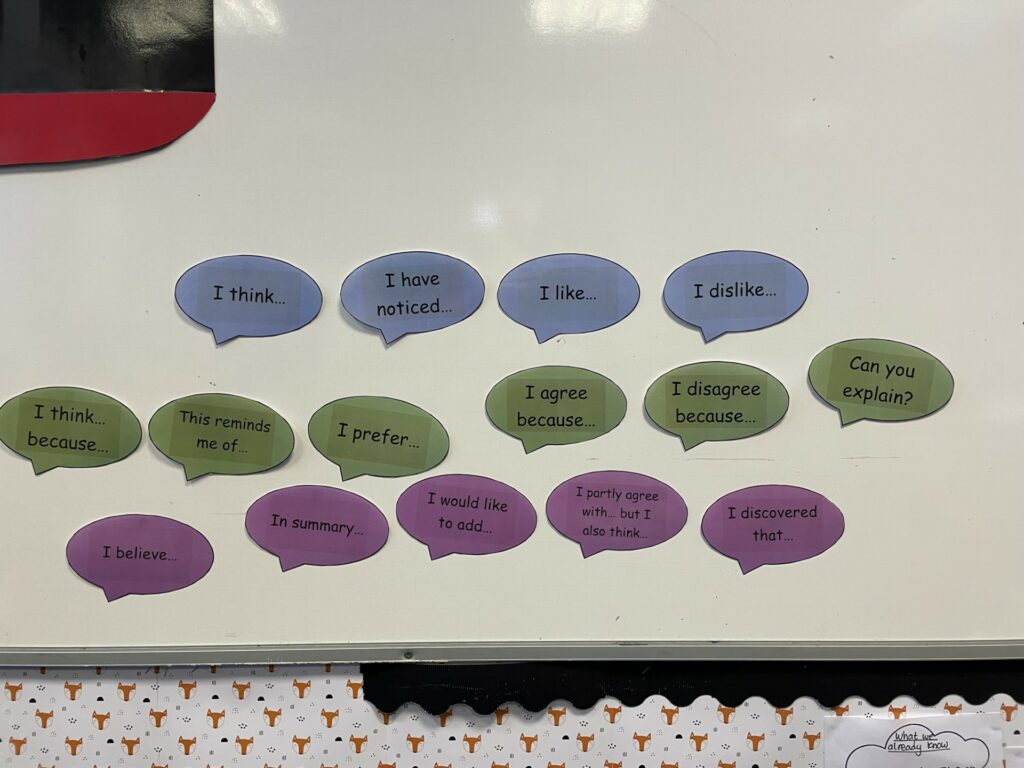 I think...
I have
noticed...
I like...
I dislike...
I think...
because...
This reminds
me of...
I prefer...
I agree
because...
I disagree
because...
Can you
explain?
I believe...
In summary...
I would like
to add...
I partly agree
with... but I
also think...
I discovered
that...
What we
already know